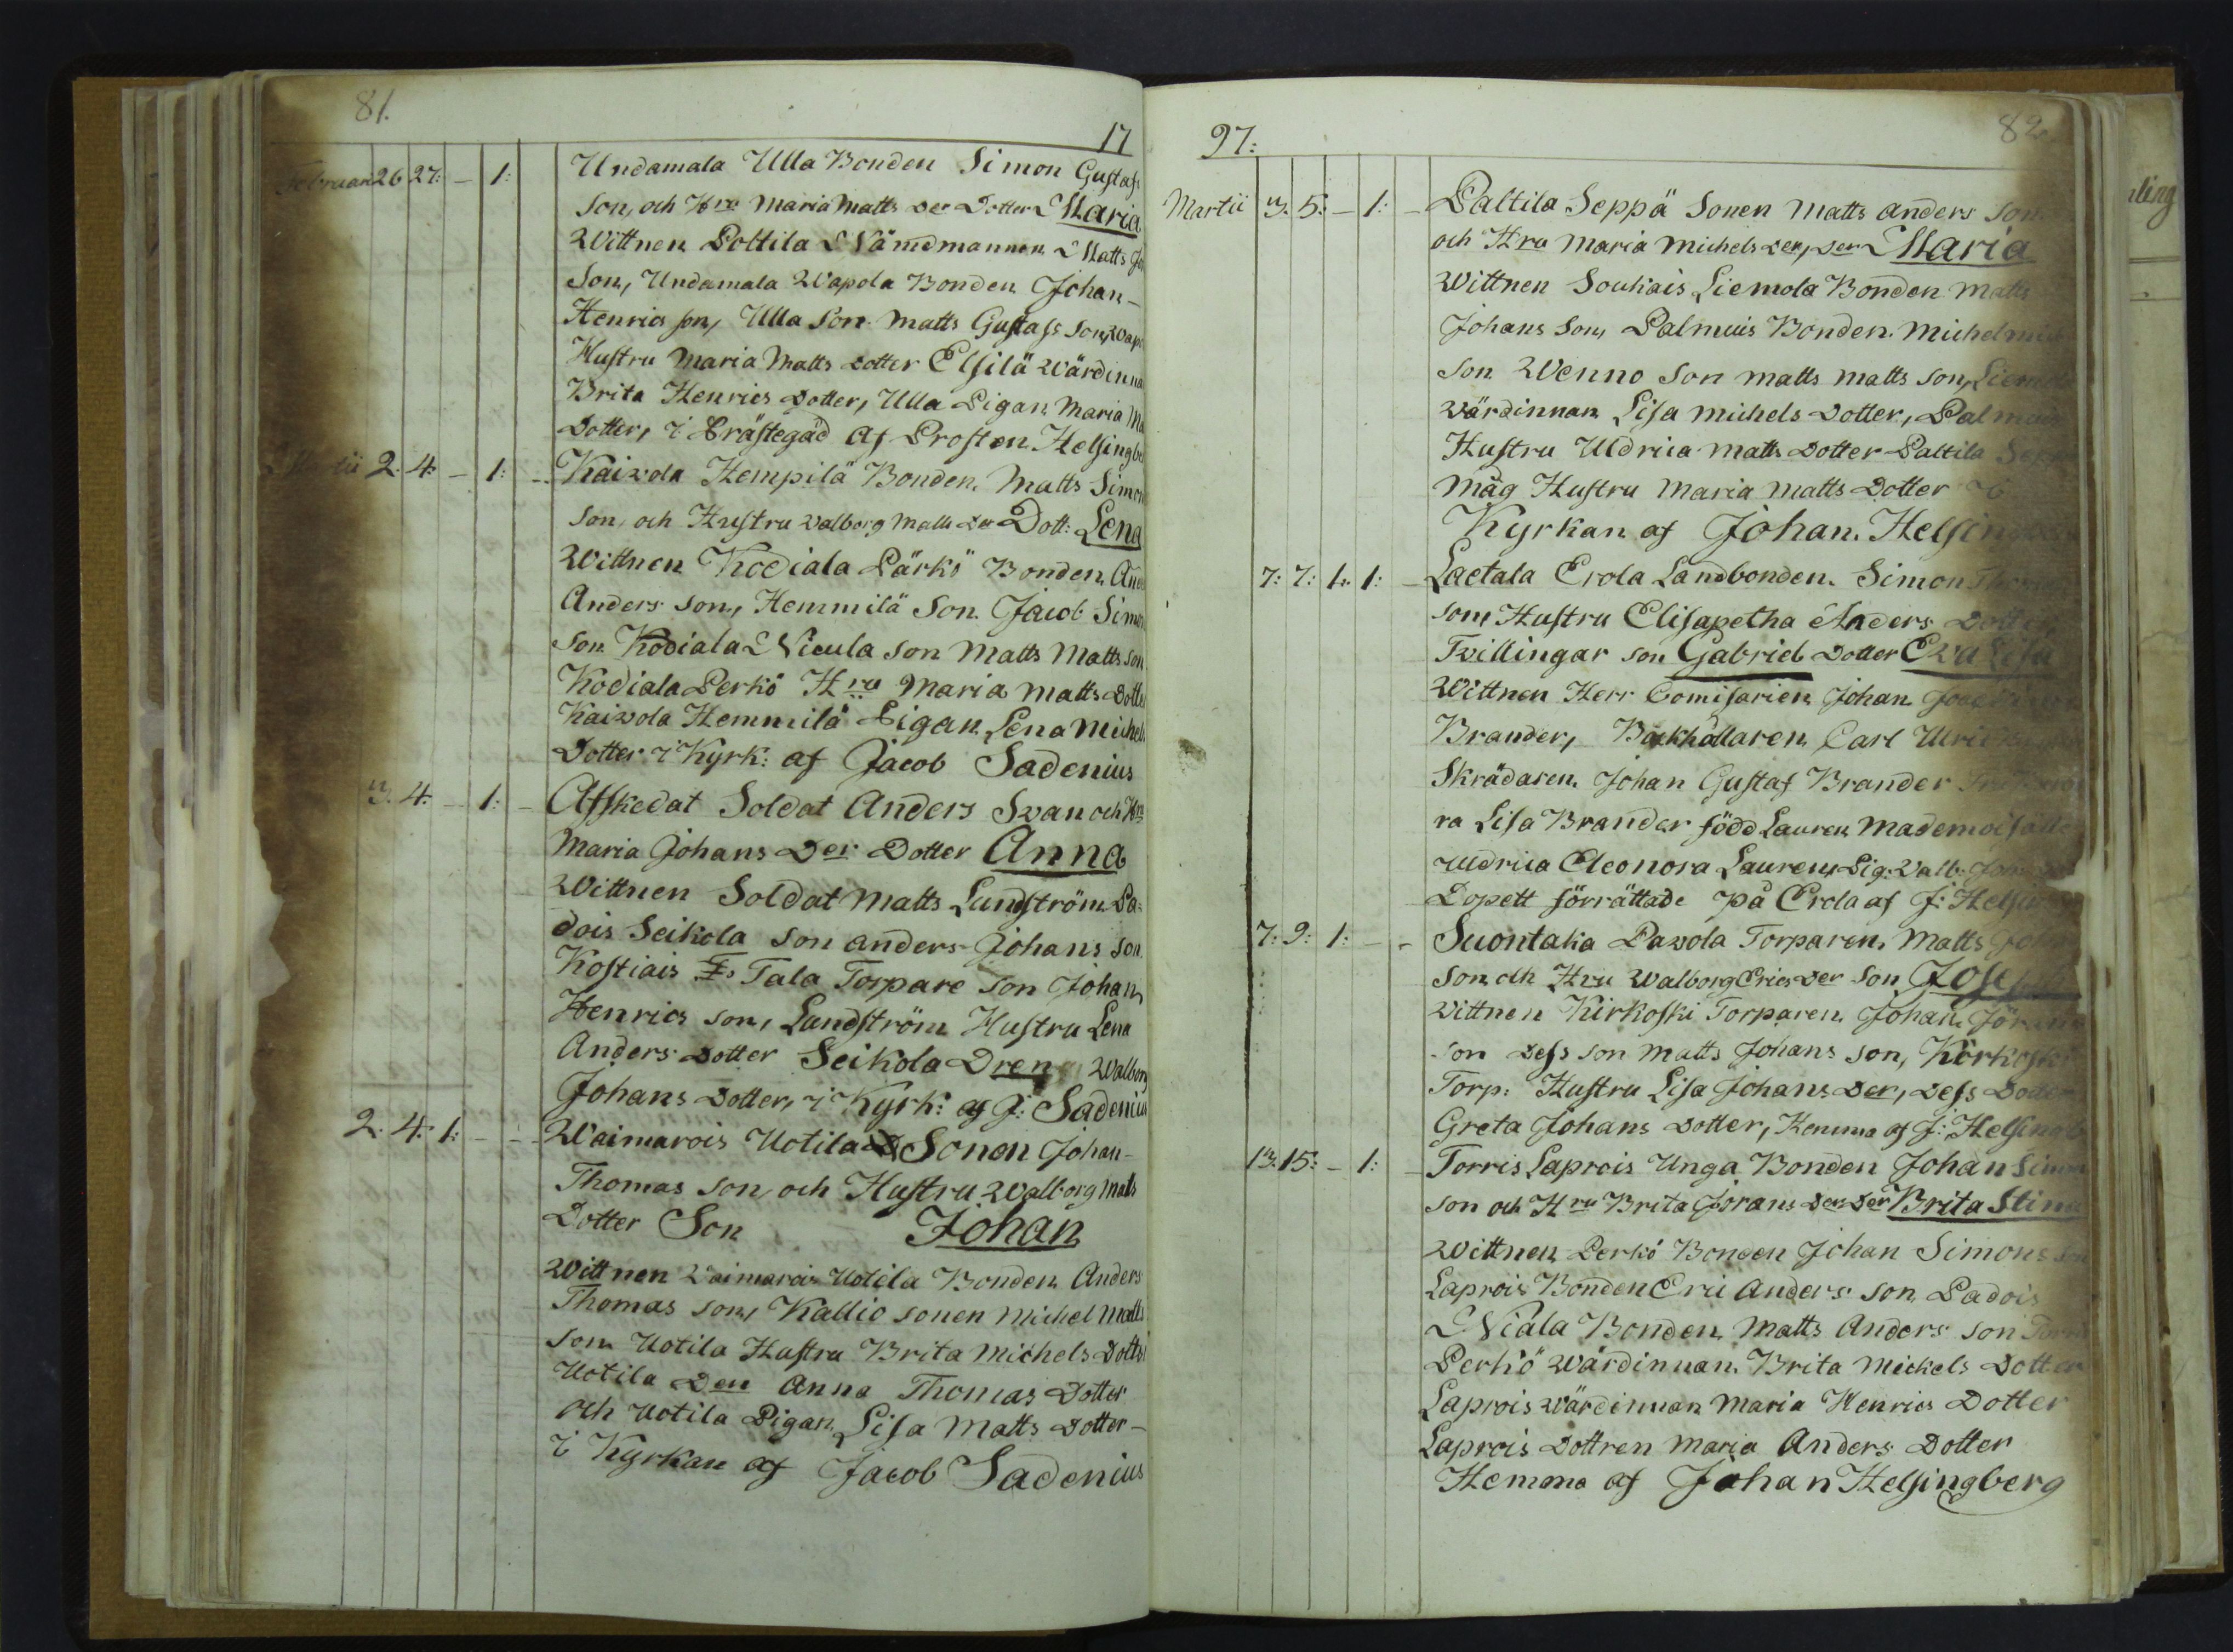 81.
17
Februari 26 27: - 1: Undamala Ulla Bonden Simon Gustafs
Son, och Hru Maria Matts Der Dotter Maria
Wittnen Poltila Nämdmannen Matts
Son, Undamala Wapola Bonden Johan-
Henrics son, Ulla Son Matts Gustafs Son,
Hustru Maria Matts Dotter Elsilä Wärdinna
Brita Henrics Dotter, Ulla Pigan Maria
Dotter, i Prästegåd af Prosten
2. 4. - 1: Kaivola Hempilä Bonden Matts Simon
Son, och Hustru Walborg Matts der Dott: Lena
Wittnen Kodiala Pärkö Bonden
Anders Son, Hemmilä Son Jacob Simon
Son Kodiala Nicula Son Matts Matts Son
Kodiala Perkö Hru Maria Matts Dotter
Kaivola Hemmilä Pigan Lena Michels
Dotter i Kyrk: af Jacob Sadenius
3. 4. - 1: Afskedat Soldat Anders Svan och Hru
Maria Johans Der Dotter Anna
Wittnen Soldat Matts Lundström Pa-
dois Seikola Son Anders Johans Son
Kostiais Tala Torpare Son Johan
Henrics Son, Lundström Hustru Lena
Anders Dotter Seikola Dren Walborg
Johans Dotter, i Kyrk: af J: Sadenius
2. 4. 1: - - Waimarois Uotila Sonen Johan-
Thomas Son, och Hustru Walborg Matts
Dotter Son Johan
Wittnen Waimarois Uotila Bonden Anders
Thomas Son, Kallio Sonen Michel Matts
Son Uotila Hustru Brita Michels Dotter
Uotila Den Anna Thomas Dotter
och Uotila Pigan Lisa Matts Dotter-
i Kyrkan af Jacob Sadenius
97:
82
Martii 3. 5. - 1: - Paltila Seppä Sonen Matts Anders Son
och Hru Maria Michels der, Der Maria
Wittnen Soukais Liemola Bonden Matts
Johans Son, Palmuis Bonden Michel
Son Wenno Son Matts Matts Son,
Wärdinnan Lisa Michels Dotter,
Hustru Uldrica Matts Dotter Paltila
Måg Hustru Maria Matts Dotter i
Kyrkan af Johan
7: 7: 1. 1: - Laetala Erola Landbonden Simon
Son, Hustru Elisapetha Anders
Tvillingar Son Gabriel Dotter Eva Lisa
Wittnen Herr Comisarien Johan
Brander, Bokhållaren Carl
Skrädaren Johan Gustaf Brander
ra Lisa Brander född Lauren Mademoiselle
Uldrica Eleonora Lauren, Pig: Valb:
Dopett förrättade på Erola af J:
7: 9: 1: - - Suontaka Pavola Torparen Matts
Son och Hru Walborg Erics Der Son Joseph
Wittnen Kirkoski Torparen Johan
Son Dess Son Matts Johans Son,
Torp: Hustru Lisa Johans Der, Dess Dotter
Greta Johans Dotter, Hemma af J:
13. 15: - 1: - Torris Laprois Unga Bonden Johan
Son och Hru Brita Jörans Der Der Brita Stina
Wittnen Perkö Bonden Johan Simons
Laprois Bonden Eric Anders Son Padois
Niala Bonden Matts Anders Son
Perkö Wärdinnan Brita Michels Dotter
Laprois Wärdinnan Maria Henrics Dotter
Laprois Dottren Maria Anders Dotter
Hemma af Johan Helsingberg